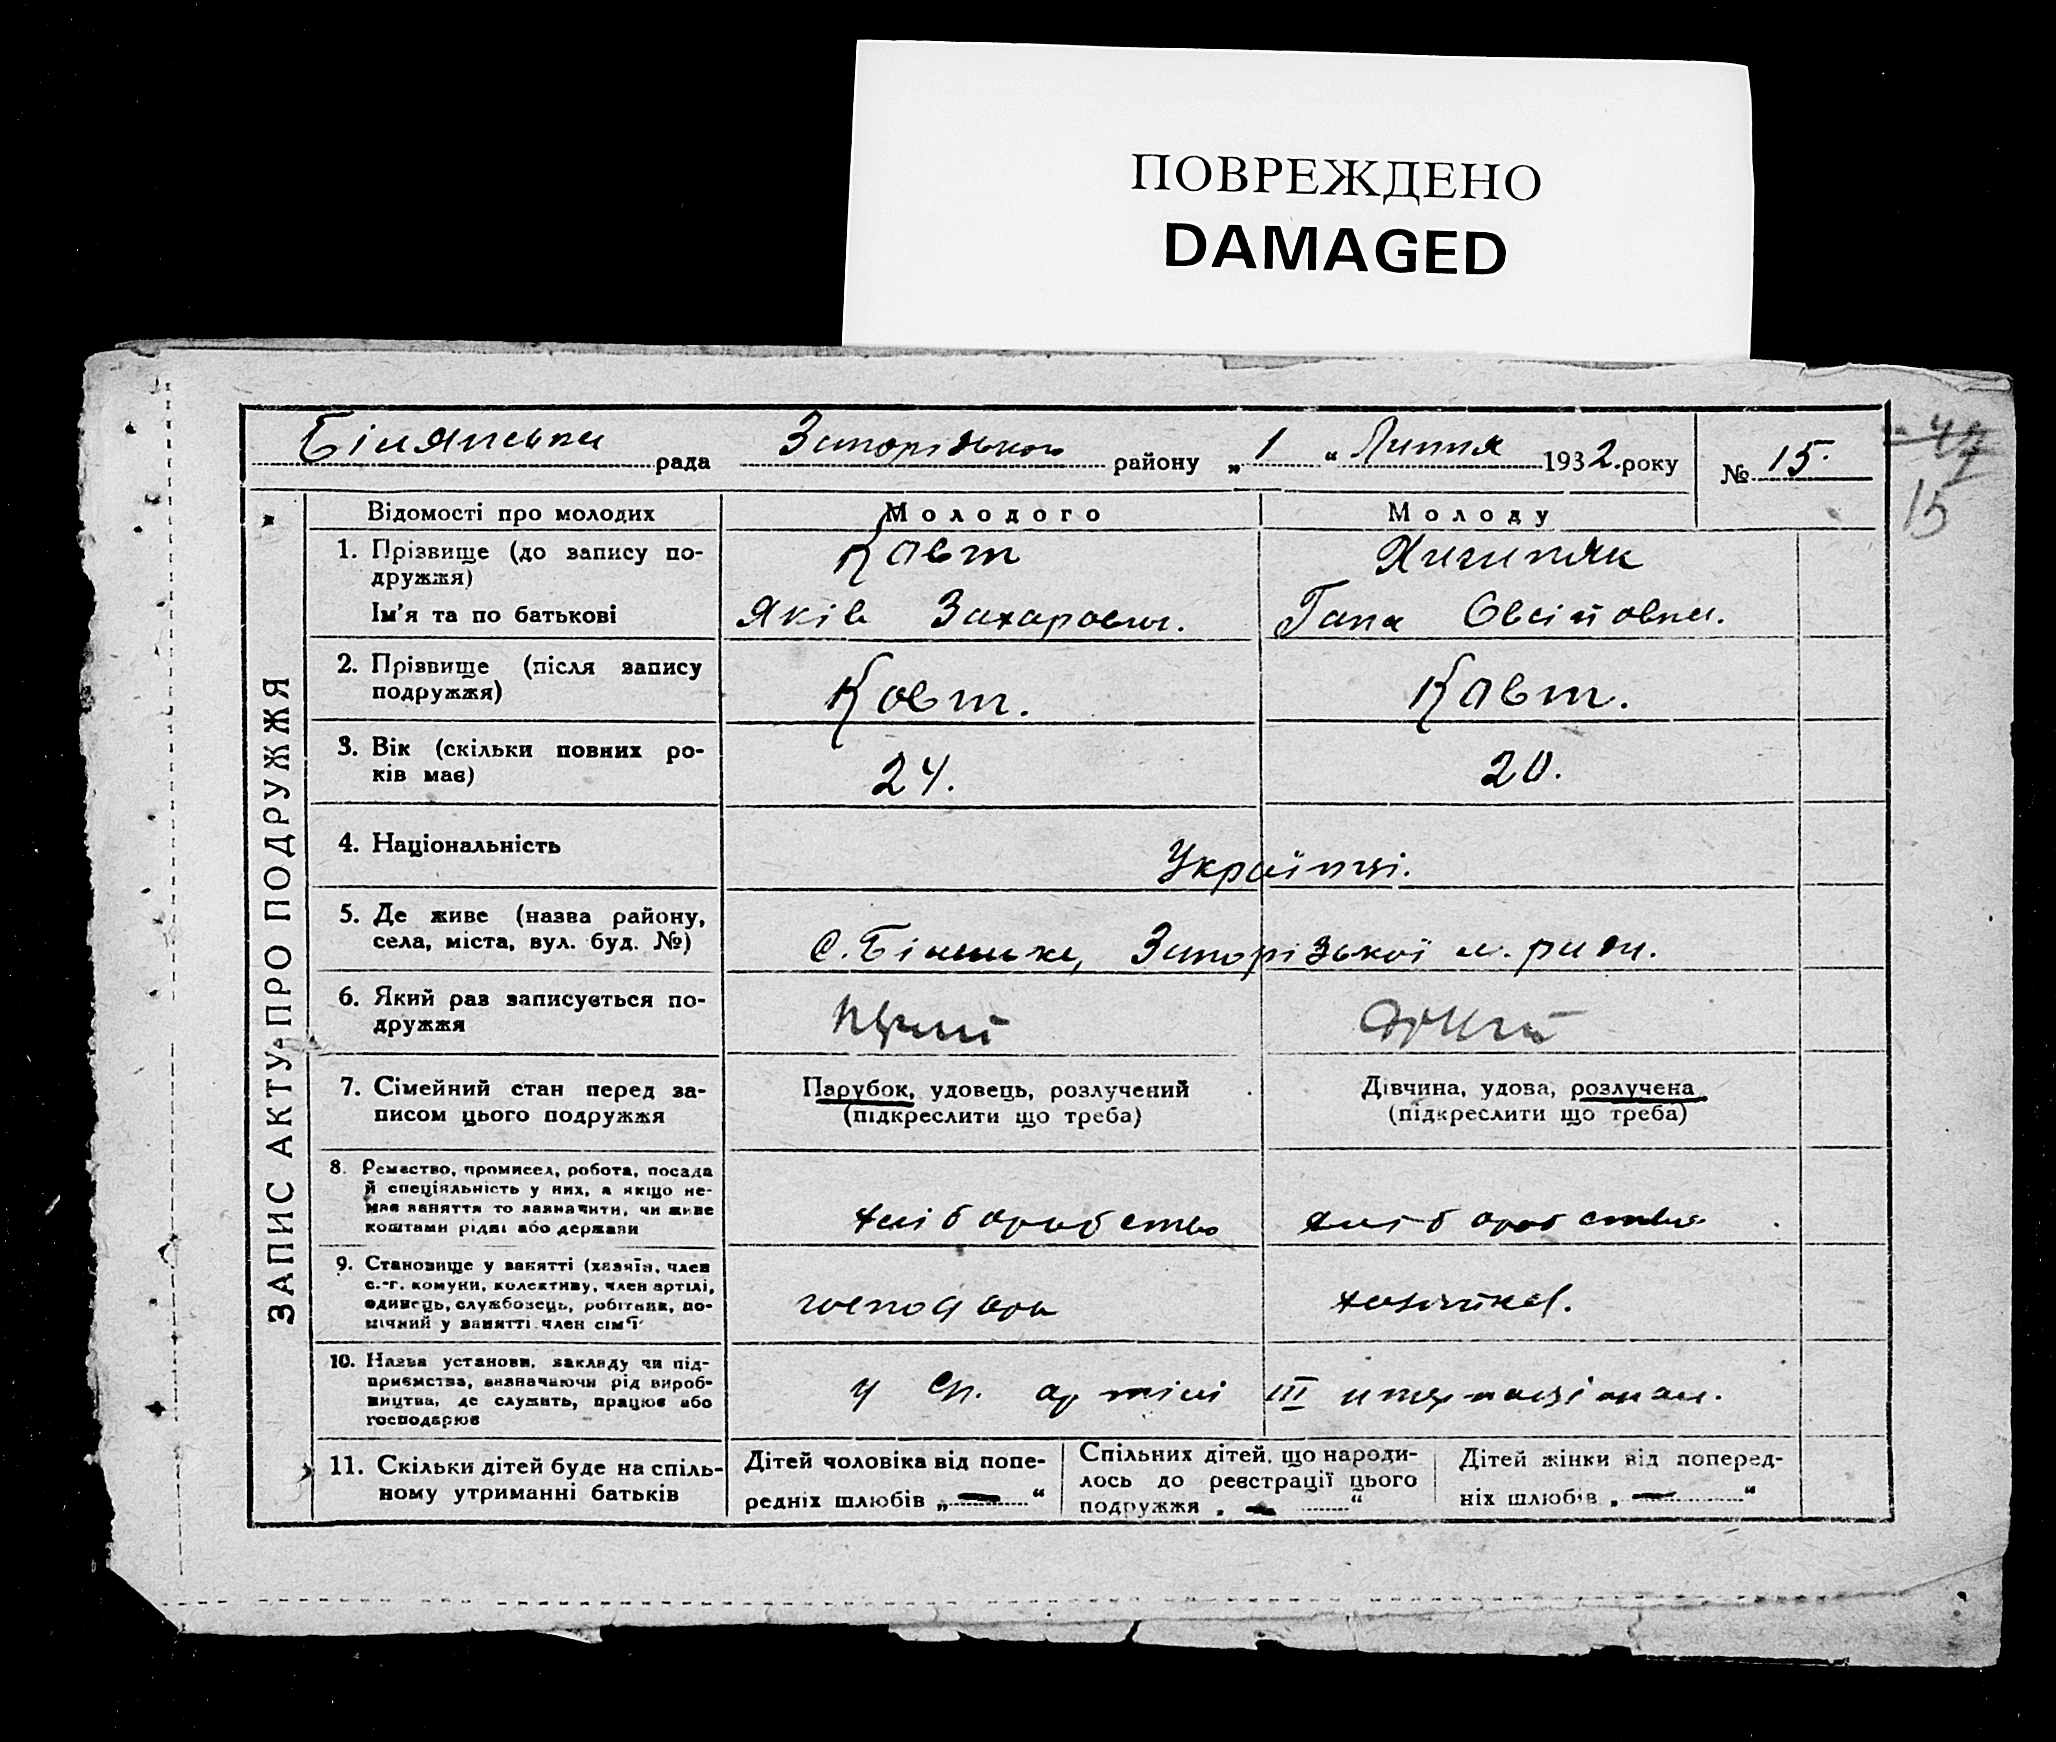 ПОВРЕЖДЕНО
DAMAGED
рада Запорізького району „ 1 “ Липня 1932. року № 15.
47
15
ЗАПИС АКТУ ПРО ПОДРУЖЖЯ
Відомості про молодих Молодого Молоду
1. Прізвище (до запису по-
дружжя)
Ковт
Ім'я та по батькові Яків Захарович. Гана Овсійовна.
2. Прізвище (після запису
подружжя)
Ковт. Ковт.
3. Вік (скільки повних ро-
ків має)
24. 20.
4. Національність Українці.
5. Де живе (назва району,
села, міста, вул. буд. №)
с. Біленьке, Запорізької м. ради.
6. Який раз записується по-
дружжя
7. Сімейний стан перед за- Парубок, удовець, розлучений Дівчина, удова, розлучена
писом цього подружжя (підкреслити що треба) (підкреслити що треба)
8. Ремество, промисел, робота, посада
й спеціяльність у них, а якщо не-
має заняття то зазначити, чи живе
коштами рідні або держави
хліборобство хліборобство
9. Становище у занятті (хазяїн, член
с.-г. комуни, колективу, член артілі,
одинець, службовець, робітник, по-
мічний у занятті член сім'ї
господарь
10. Назва установи, закладу чи під-
приємства, визначаючи рід вироб-
ництва, де служить, працює або
господарює
у артілі III интернаціонал.
11. Скільки дітей буде на спіль-
ному утриманні батьків
Дітей чоловіка від попе-
редніх шлюбів „ — “
Спільних дітей, що народи-
лось до реєстрації цього
подружжя „ — “
Дітей жінки від поперед-
ніх шлюбів „ — “